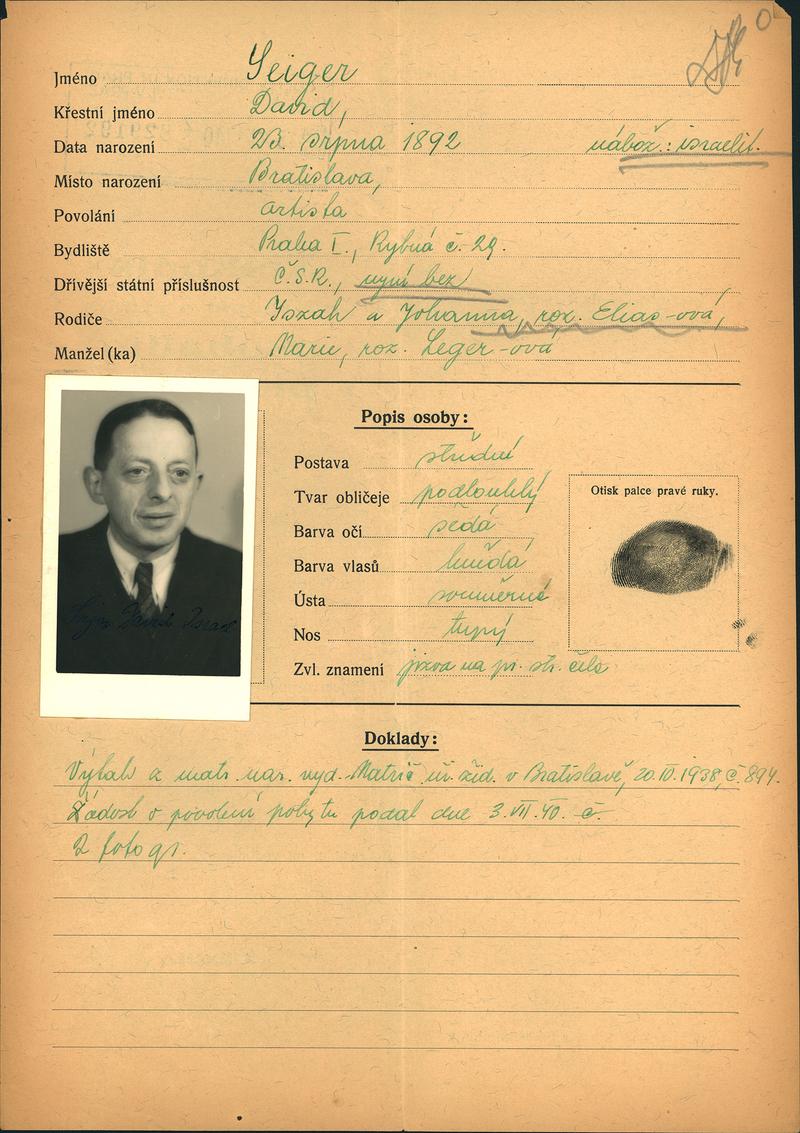 Jméno Seiger
Křestní jméno David,
Data narození 23. srpna 1892 nábož.: israelit.
Místo narození Bratislava,
Povolání artista
Bydliště Praha I., Rybná č. 29.
Dřívější státní příslušnost Č.S.R., nyní bez
Rodiče Iszak a Johanna, roz. Elias-ová,
Manžel(ka) Marie, roz. Leger-ová
Popis osoby:
Postava střední
Tvar obličeje podlouhlý
Barva očí šedá
Barva vlasů hnědá
Ústa souměrné
Nos tupý
Zvl. znamení jizva na pr. str. čela
Otisk palce pravé ruky.
David Israel
Doklady:
Výtah z matr. nar. vyd. Matrič. úř. žid. v Bratislavě, 20.IV.1938, č. 894.
Žádost o povolení pobytu podal dne 3.VII.40. č.
2 fotogr.